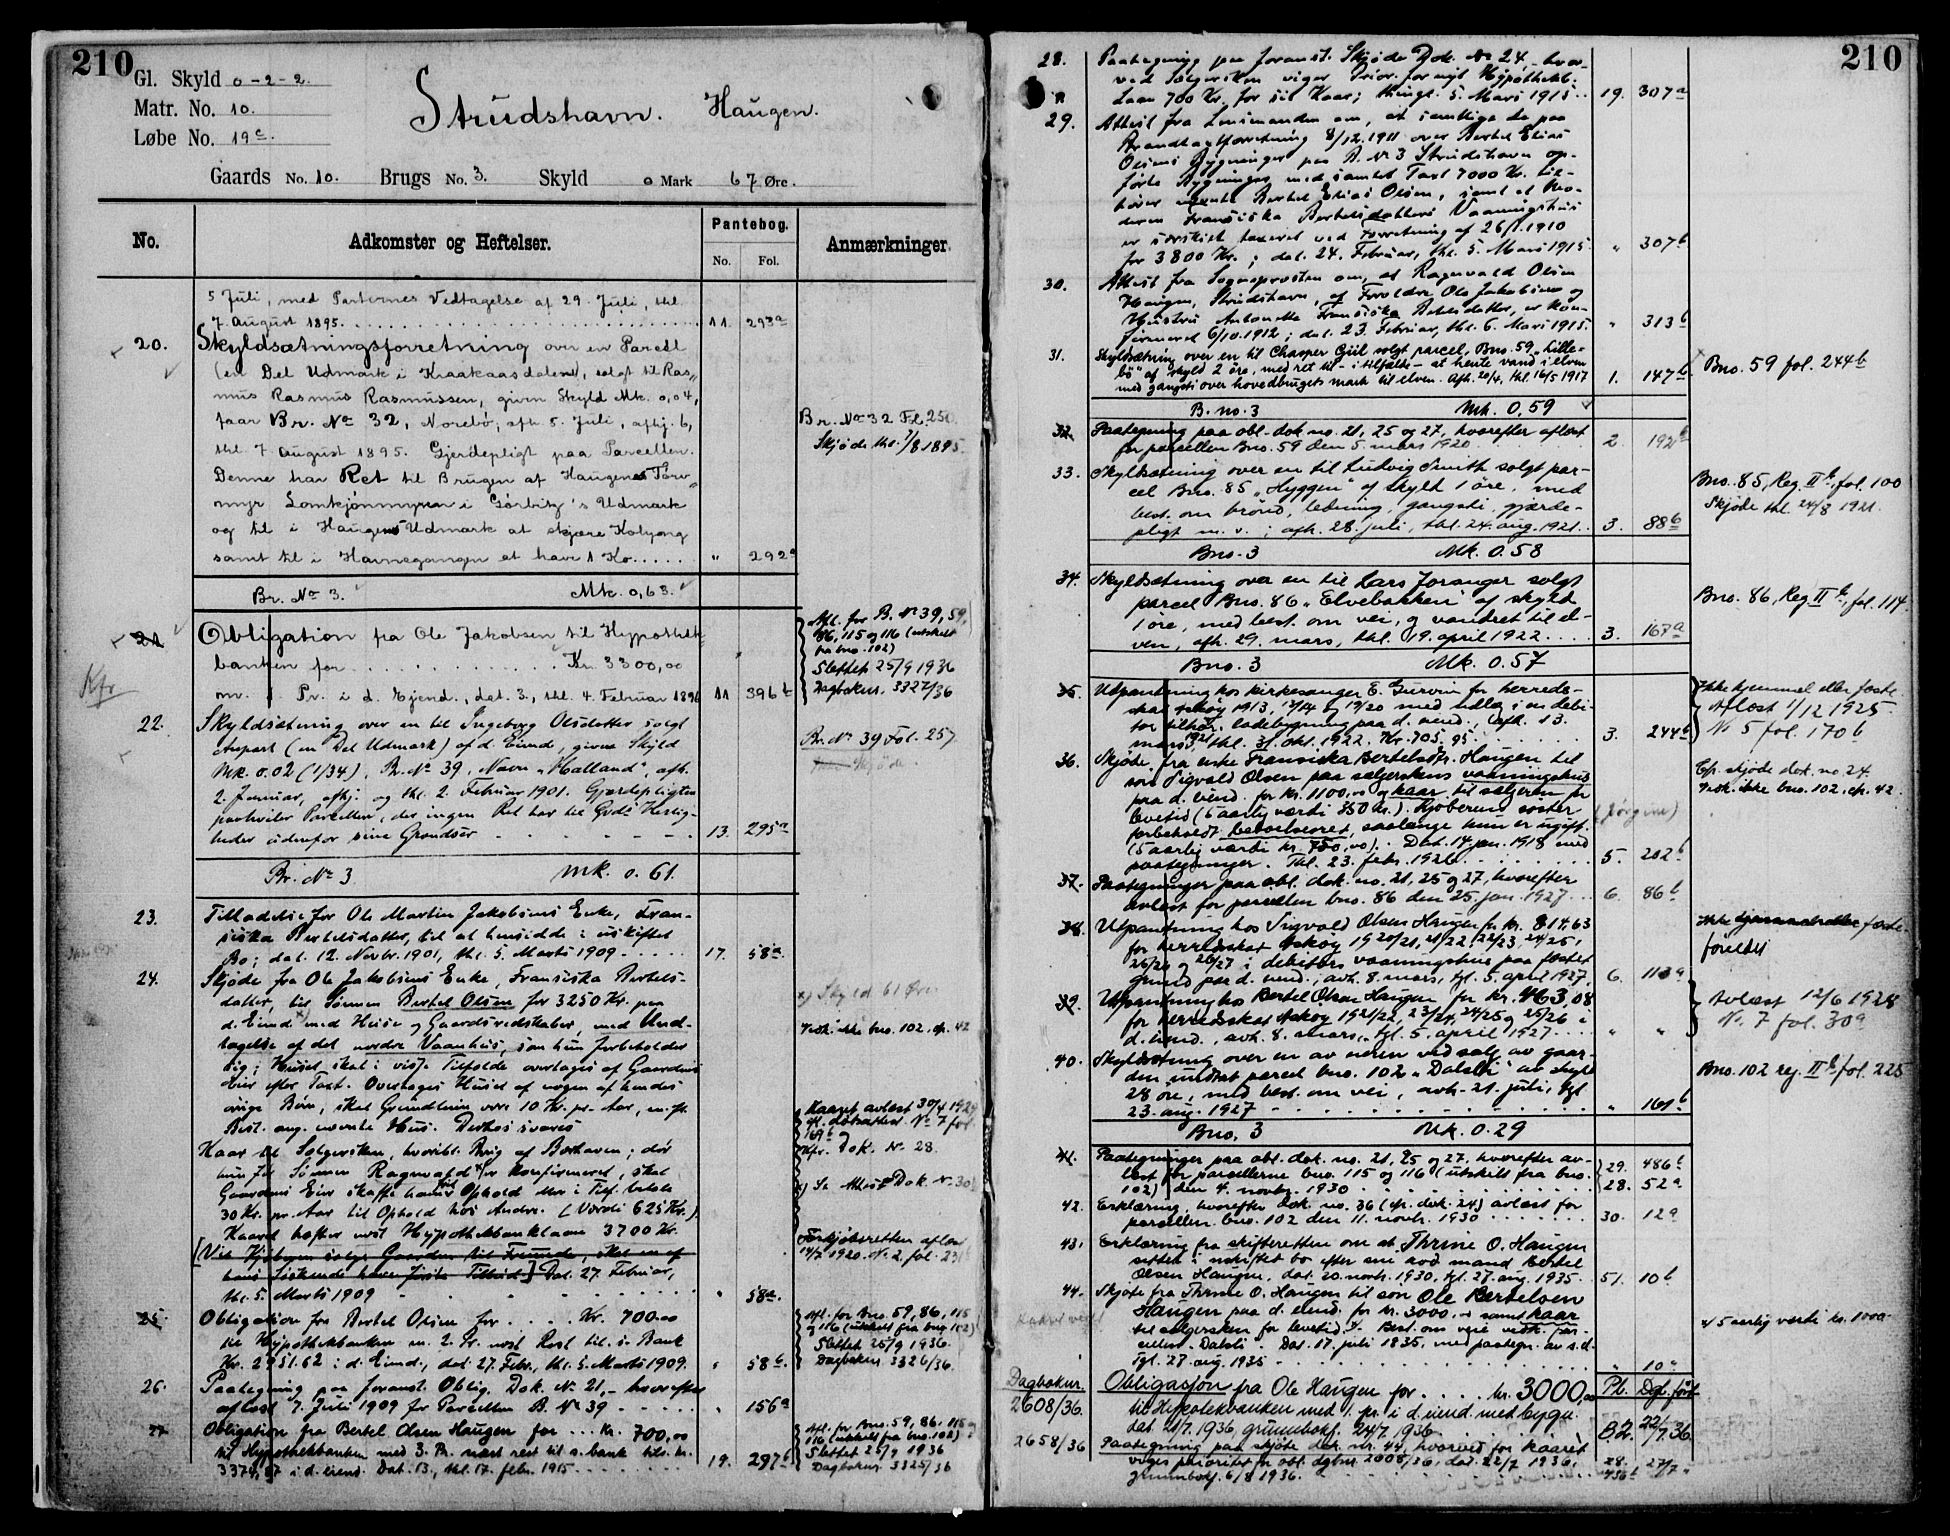 210
Gl. Skyld 0-2-2.
Matr. No. 10.
Løbe No. 19c.
Strudshavn. Haugen.
Gaards No. 10. Brugs No. 3. Skyld 0 Mark 67 Øre.
No.
Adkomster og Heftelser.
Pantebog.
No. Fol.
Anmærkninger.
5 Juli, med Parternes Vedtagelse af 29. Juli, thl.
7. August 1895. 11. 293a
20. Skyldsætningsforretning over en Parcel
(en Del Udmark i Kraakaasdalen), solgt til Ras„
mus Rasmus Rasmussen, given Skyld Mk. 0,04,
faar Br. No 32, Norebø; afh. 5. Juli, afhj. 6,
thl. 7 August 1895. Gjerdepligt paa Parcellen.
Denne har Ret til Brugen af Haugens Torv„
myr Lomtjønmyren i Udmark
og til i Haugens Udmark at skjære
samt til i Havnegangen at have 1 Ko..... " 292a
Br. No 32 Fol. 250.
Skjøde thl. 7/8 1895.
Br. No 3. Mk. 0,63.
21. Obligation fra Ole Jakobsen til Hypothek
banken for Kr. 3300,00
m. 1. Pr. i d. Ejend., dat. 3., thl. 4. Februar 1896 11 396b
Afl. for B. No 39, 59,
86, 115 og 116 (utskilt
fra bno. 102)
Slettet 25/9 1936
Dagboknr. 3327/36
Kfr
22. Skyldsætning over en til Ingeborg Olsdatter solgt
Anpart (en Del Udmark) af d. Eiend., given Skyld
Mk. 0.02 (1/34), Br. No 39, Navn „Halland“, afh.
2. Januar, afhj. og thl. 2. Februar 1901. Gjærdepligten
paahviler Parcellen, der ingen Ret har til Grds Herlig-
heder udenfor sine Grændser 13. 295a
Br. No 39 Fol. 257
Skjøde
Br. No 3 Mk. 0.61.
23. Tilladelse for Ole Martin Jakobsens Enke, Fran-
siska Bertelsdatter, til at hensidde i uskiftet
Bo; dat. 12. Novbr. 1901, thl. 5. Marts 1909 17. 58a.
24. Skjøde fra Ole Jakobsens Enke, Fransiska Bertels-
datter, til Sønnen Bertel Olsen for 3250 Kr. paa
d. Eiend. x) med Huse og Gaardsredskaber, med Und-
tagelse af det nordre Vaanhus, som hun forbeholder
sig; Huset skal i visse Tilfælde overtages af Gaardens
Eier efter Taxt. Overtages Huset af nogen af hendes
øvrige Børn, skal Grundleien være 10 Kr. pr. Aar, m. fl.
Best. ang. nævnte Hus. Derhos svares
Kaar til Sælgersken, hvoribl. Brug af Borhaven; dør
hun før Sønnen Ragnvald er konfirmeret, skal
Gaardens Eier skaffe ham frit Ophold eller i Tilf. betale
30 Kr. pr. Aar til Ophold hos Andre. (Værdi 625 Kr.).
Kaaret hefter næst Hypothekbanklaan 3700 Kr.
[Vil Kjøberen sælge Gaarden til Fremmede, skal en af
hans Søskende have første Tilbud] Dat. 27. Februar,
thl. 5. Marts 1909 " 58a.
x) Skyld 61 Øre
Vedk. ikke bno. 102, cfr. 42
Kaaret avlæst 30/4 1929
if. dødsattest No 7 fol.
169b
Kfr. Dok. No. 28.
x) Se Attest Dok. No. 30
Forkjøbsretten aflæst
14/7 1920. No 2, fol. 231
25. Obligation fra Bertel Olsen for Kr. 700.00
til Hypothekbanken m. 2. Pr. næst Rest til s. Bank
Kr. 2951.62 i d. Eiend., dat. 27. Febr., thl. 5. Marts 1909. " 58b.
Afl. for Bno. 59, 86, 115
og 116 (utskilt fra bno. 102)
Slettet 25/9 1936.
Dagboknr. 3326/36.
26. Paategning paa foranst. Oblig. Dok. No 21, - hvorefter
aflæst 7. Juli 1909 for Parcellen B. No 39 " 156a
27. Obligation fra Bertel Olsen Haugen for Kr. 700,00
til Hypothekbanken med 3. Pr. næst rest til s. bank tils. kr.
3374,87 i d. eiend. Dat. 13., thl. 17. febr. 1915 19. 297b
Afl. for Bno. 59, 86, 115 og
116 (utskilt fra bno. 102)
Slettet 25/9 1936
Dagboknr. 3325/36
210
28. Paategning paa foranst. Skjøde Dok. No 24, hvor-
ved Sælgersken viger Prior. for nyt Hypothekb.
Laan 700 Kr. for sit Kaar; thingl. 5. Mars 1915 19. 307a
29. Attest fra Lensmanden om, at samtlige de paa
Brandtaxtforretning 8/12.1911 over Bertel Elias
Olsens Bygninger paa B. No 3 Strudshavn op-
førte Bygninger med samlet Taxt 7000 Kr. til-
hører nævnte Bertel Elias Olsen, samt at Mo-
deren Fransiska Bertelsdatters Vaaningshus
er særskilt taxeret ved Forretning af 26/1.1910
for 3800 Kr.; dat. 24. Februar, thl. 5. Mars 1915. " 307b
30. Attest fra Sogneprosten om, at Ragnvald Olsen
Haugen, Strudshavn, af Forældre Ole Jakobsen og
Hustru Antonette Fransiska Bertelsdatter, er kon-
firmeret 6/10.1912; dat. 23. Februar, thl. 6. Mars 1915. " 313b
31. Skyldsætning over en til Chasper Giil solgt parcel, Bno. 59 „Lille-
bö“ af skyld 2 öre, med ret til - i tilfælde - at hente vand i elven
med gangsti over hovedbrugets mark til elven. Afh. 20/4, thl. 16/5 1917 1. 147b
Bno. 59 fol. 244b
B. no. 3 Mk. 0,59
32. Paategning paa obl. dok. no. 21, 25 og 27, hvorefter aflæst
for parcellen Bno. 59 den 5 mars 1920 2. 192b
33. Skyldsætning over en til Ludvig Smith solgt par-
cel Bno. 85 „Hyggen“ af skyld 1 öre, med
best. om brönd, ledning, gangsti, gjærde-
pligt m. v.; afh. 28. juli, thl. 24. aug. 1921 3. 88b
Bno. 85, Reg. IIk, fol. 100
Skjöte thl. 24/8 1921.
Bno. 3 Mk. 0.58
34. Skyldsætning over en til Lars Joranger solgt
parcel Bno. 86 „Elvebakken“ af skyld
1 öre, med best. om vei, og vandret til el-
ven, afh. 29. mars, thl. 19. april 1922 3. 167a
Bno. 86, Reg IIk, fol. 114.
Bno. 3 Mk. 0.57
35. Utpantning hos kirkesanger E. Gurvin for herreds-
skat 1913, 13/14 og 19/20 med utlæg i en debi-
tor tilhør. ladebygning paa d. eiend., afh. 13.
mars 1921, thl. 31. okt. 1922. Kr. 705.95 3. 244b
Ikke hjemmel eller fæste.
Aflæst 1/12 1925.
No 5 fol. 170b
36. Skjöte fra enke Fransiska Bertelsdtr. Haugen til
sön Sigvald Olsen paa sælgerskens vaaningshus
paa d. eiend. for kr. 1100,00 og kaar til sælgeren for
levetid (5 aarlig værdi 350 kr.). Kjöberens söster
forbeholdt beboelsesret, saalænge hun er ugift.
(5 aarlig værdi kr. 750,00). Dat. 14. jan. 1918 med
paategninger. Thl. 23. febr. 1926 5. 202b
Cfr. skjøte dok. no 24.
Vedk. ikke bno. 102, cfr. 42.
(Jörgine)
37. Paategninger paa obl. dok. no. 21, 25 og 27, hvorefter
avlæst for parcellen bno. 86 den 25. jan. 1927 6. 86b
38. Utpantning hos Sigvald Olsen Haugen for kr. 814,63
for herredsskat Askøy 1920/21, 21/22, 22/23, 24/25,
25/26 og 26/27 i debitors vaaningshus paa fæstet
grund paa d. eiend., avh. 8. mars, tgl. 5. april 1927. 6. 113a
39. Utpantning hos Bertel Olsen Haugen for kr. 463,08
for herredsskat Askøy 1921/22, 23/24, 24/25 og 25/26 i
d. eiend., avh. 8. mars, tgl. 5. april 1927 " "
Avlæst 12/6 1928
No. 7 fol. 30a
40. Skyldsetning over en av eieren ved salg av gaar-
den undtat parcel bno. 102 „Dalsli“ av skyld
28 öre, med best. om vei, avh. 21. juli, tgl.
23. aug. 1927 " 161b
Bno. 102 reg. IIk fol. 225
Bno. 3 Mk. 0.29
41. Paategninger paa obl. dok. no. 21, 25 og 27, hvorefter av-
læst for parcellerne bno. 115 og 116 (utskilt fra bno.
102) den 4. novbr. 1930 29. 486b
28. 52a
42. Erklæring, hvorefter dok. no. 36 (cfr. dok. 24) avlæst for
parcellen bno. 102 den 11. novbr. 1930 30. 12a
43. Erklæring fra skifteretten om at Thrine O. Haugen
sitter i uskiftet bo efter sin avd. mand Bertel
Olsen Haugen, dat. 20. novbr. 1930, tgl. 27. aug. 1935 51. 10b
44. Skjøte fra Thrine O. Haugen til sön Ole Bertelsen
Haugen paa d. eiend. for kr. 3000,00 samt kaar
til selgersken for levetid x). Best. om veie vedk.
Dalsli. Dat. 17. juli 1935, med paategn. av s.d.
Tgl. 27. aug. 1935 " 10"
x) 5 aarlig verdi kr. 1000.-
Dagboknr. Obligasjon fra Ole Haugen for kr. 3000,00 Pb. Dgb. ført
2608/36. til Hypotekbanken med 1. pr. i d. eiend. med bygn.
dat. 21/7 1936, grunnbokf. 24/7 1936 B2. 22/7.36.
2658/36 Paategning paa skjøte dok. nr. 44, hvorved for kaaret
viges prioritet for obl. dgbnr. 2608/36, dat. 22/7 1936,
grunnbokf. 6/8 1936. 28. 27/7 "
436b